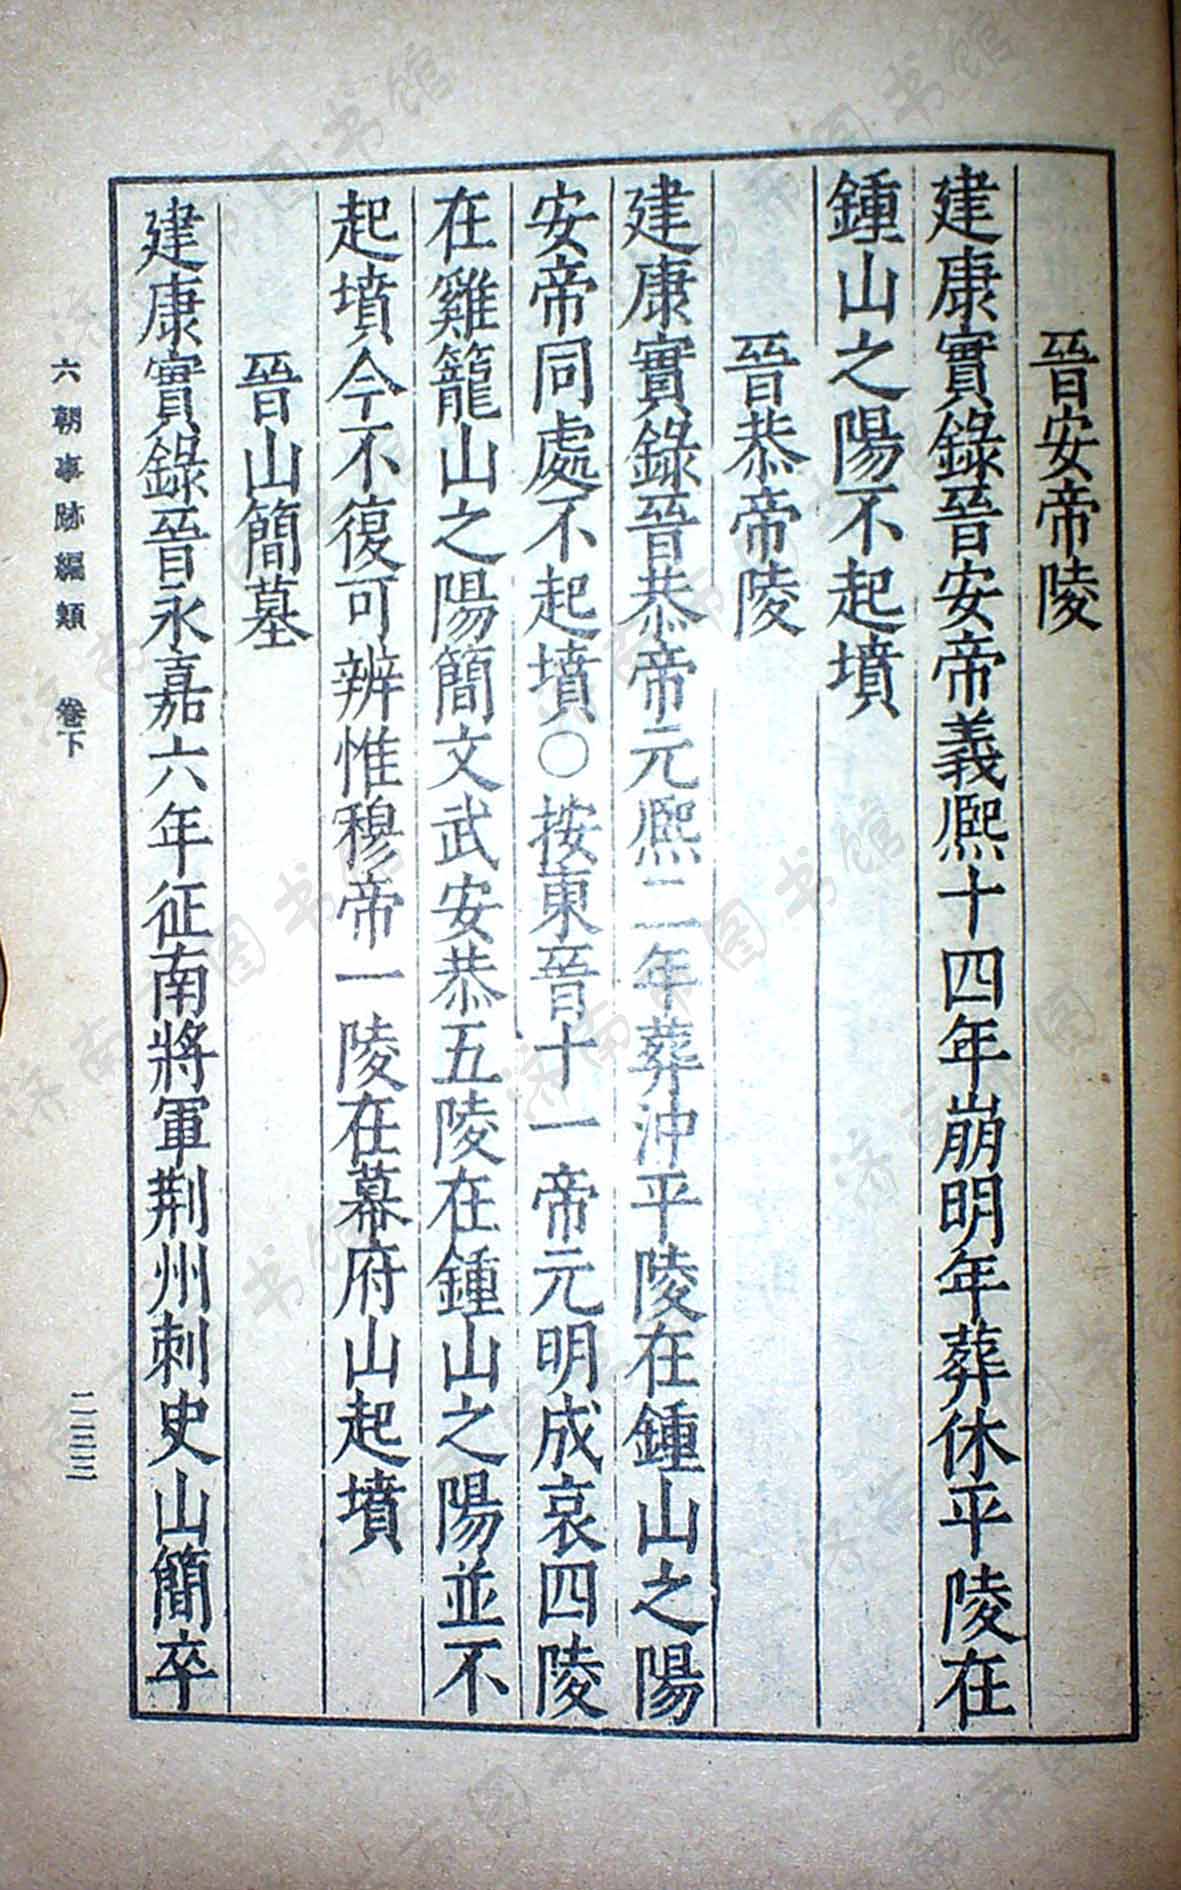 晉安帝陵
建康實錄晉安帝義熙十四年崩明年葬休平陵在
鍾山之陽不起墳
晉恭帝陵
建康實錄晉恭帝元熙二年葬沖平陵在鍾山之陽
安帝同處不起墳○按東晉十一帝元明成哀四陵
在雞籠山之陽簡文武安恭五陵在鍾山之陽並不
起墳今不復可辨惟穆帝一陵在幕府山起墳
晉山簡墓
建康實錄晉永嘉六年征南將軍荆州刺史山簡卒
六朝事跡編類 卷下
二三三
济南市图书馆